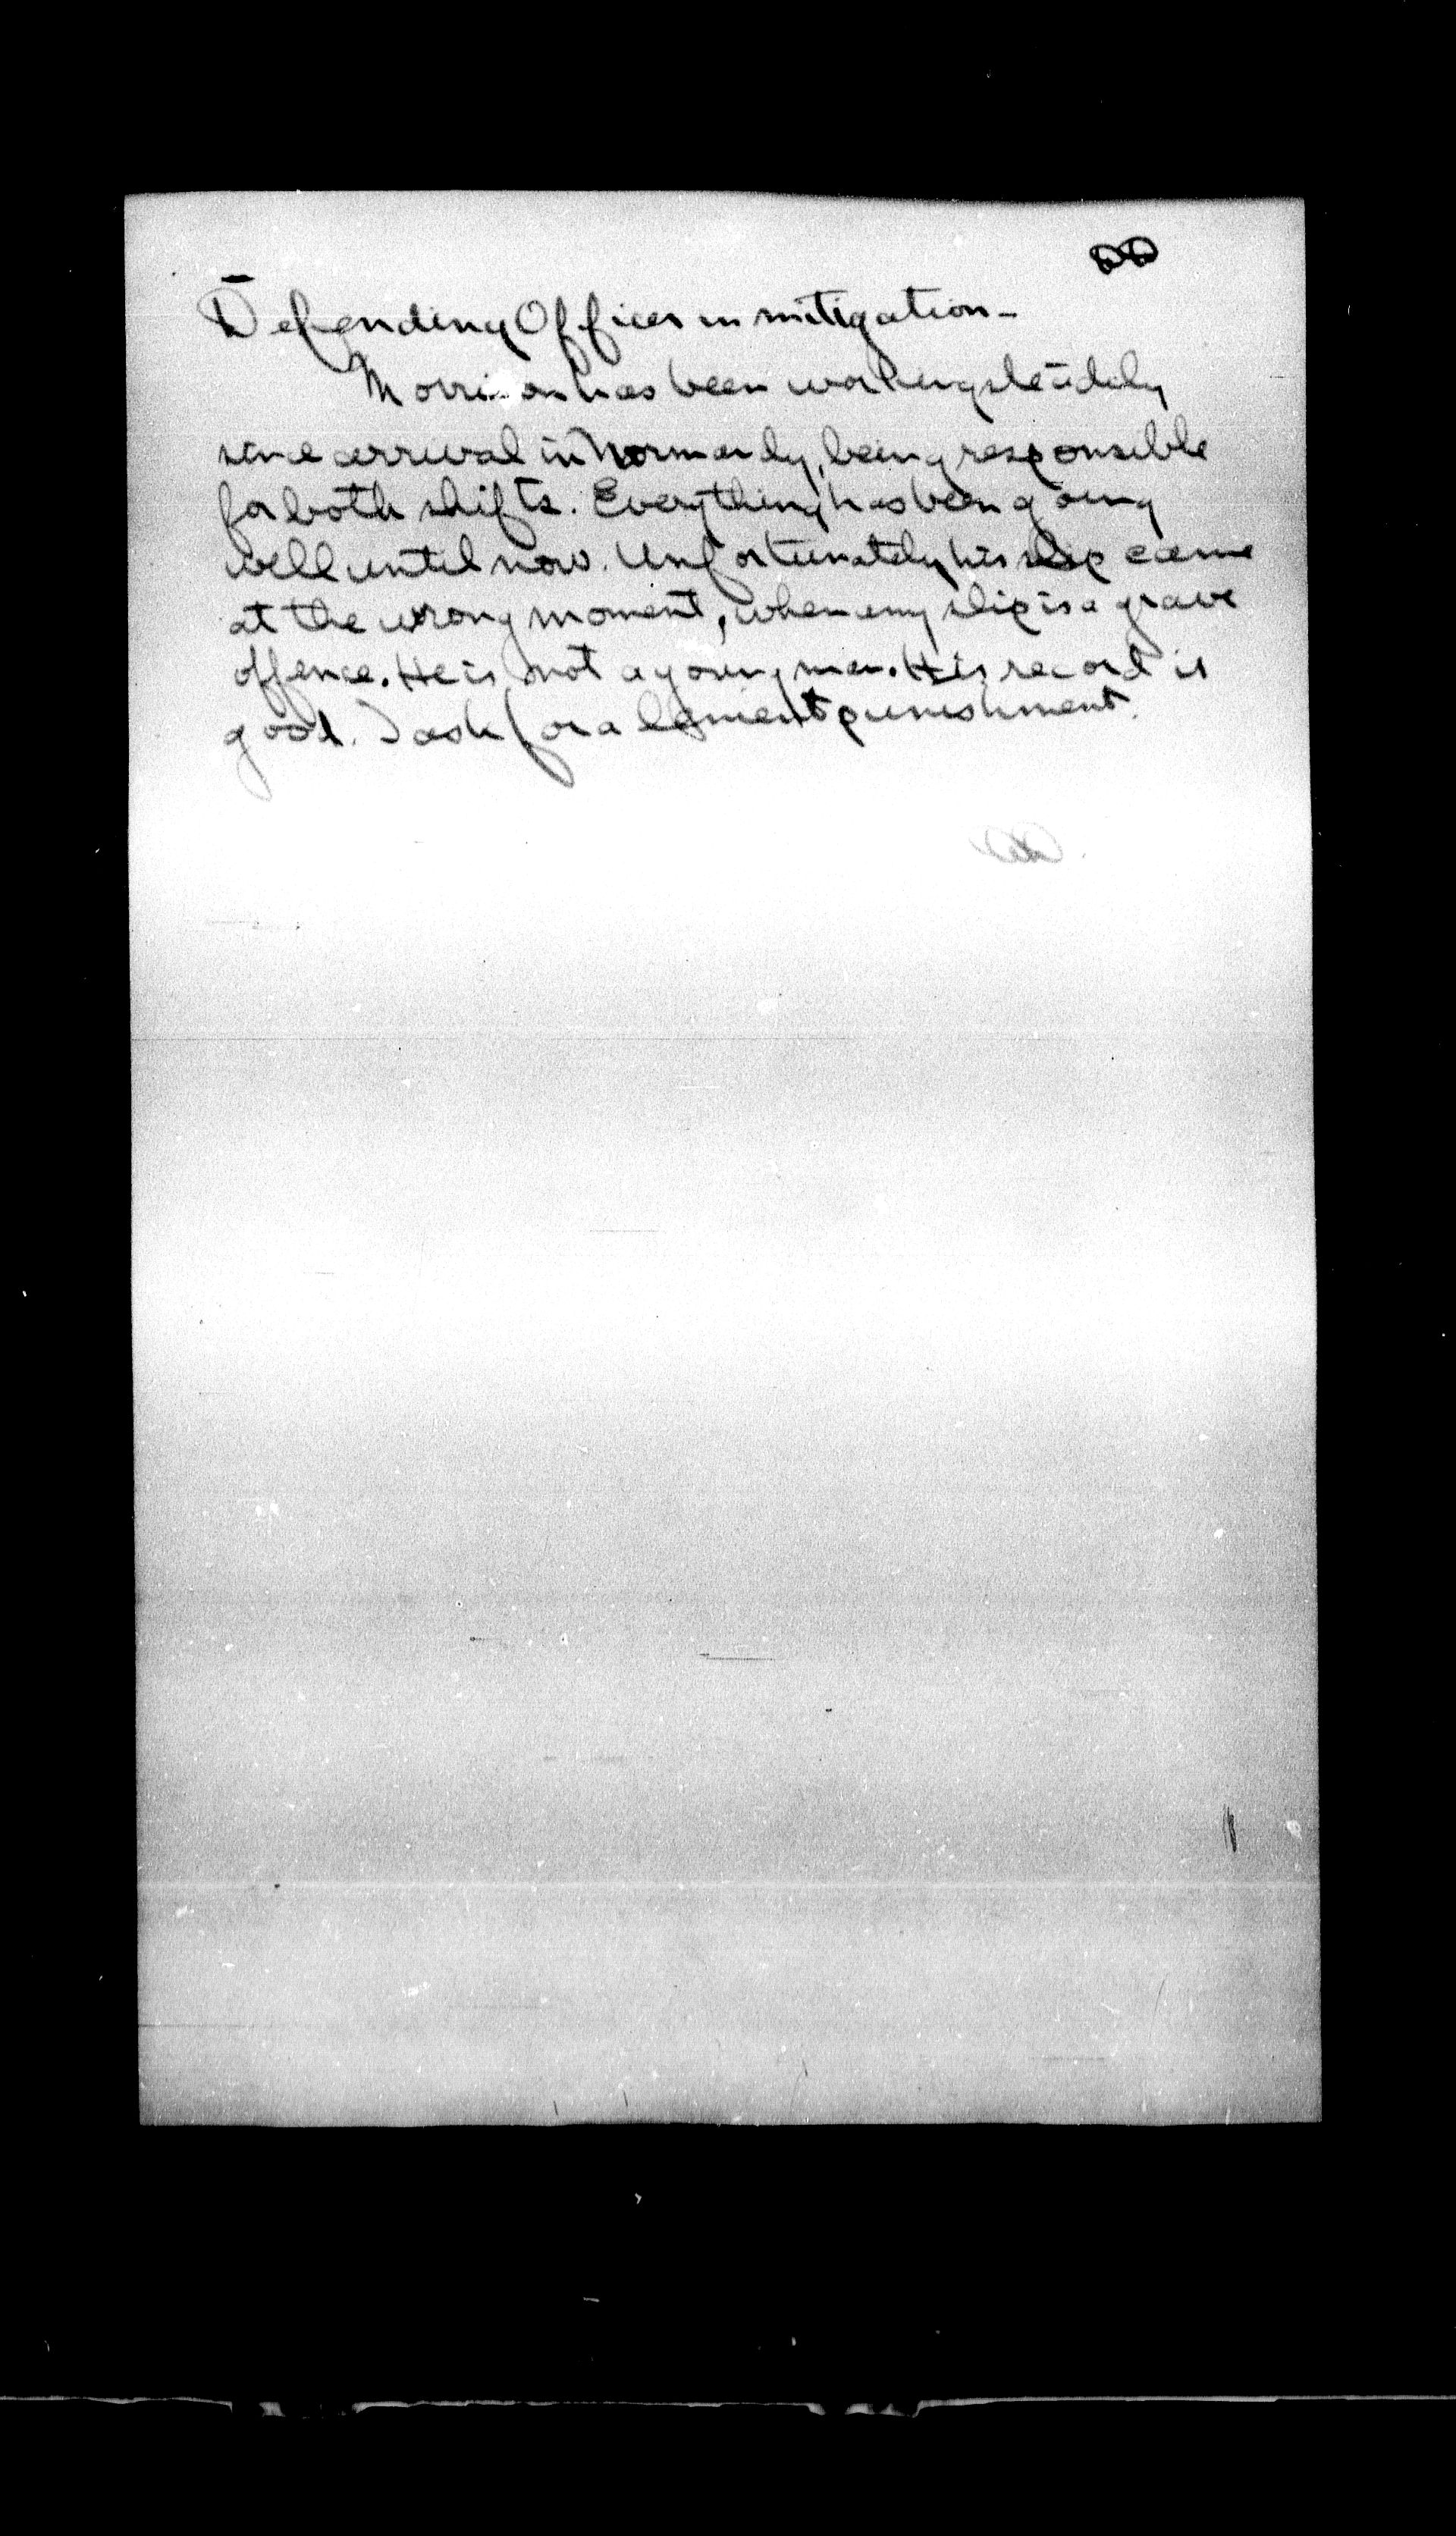 Defending Officer in mitigation -
Morrison has been working steadily
since arrival in Normandy, being responsible
for both shifts. Everything has been going
well until now. Unfortunately his slip came
at the wrong moment, when any slip is a grave
offence. He is not a young man. His record is
good. I ask for a lenient punishment.